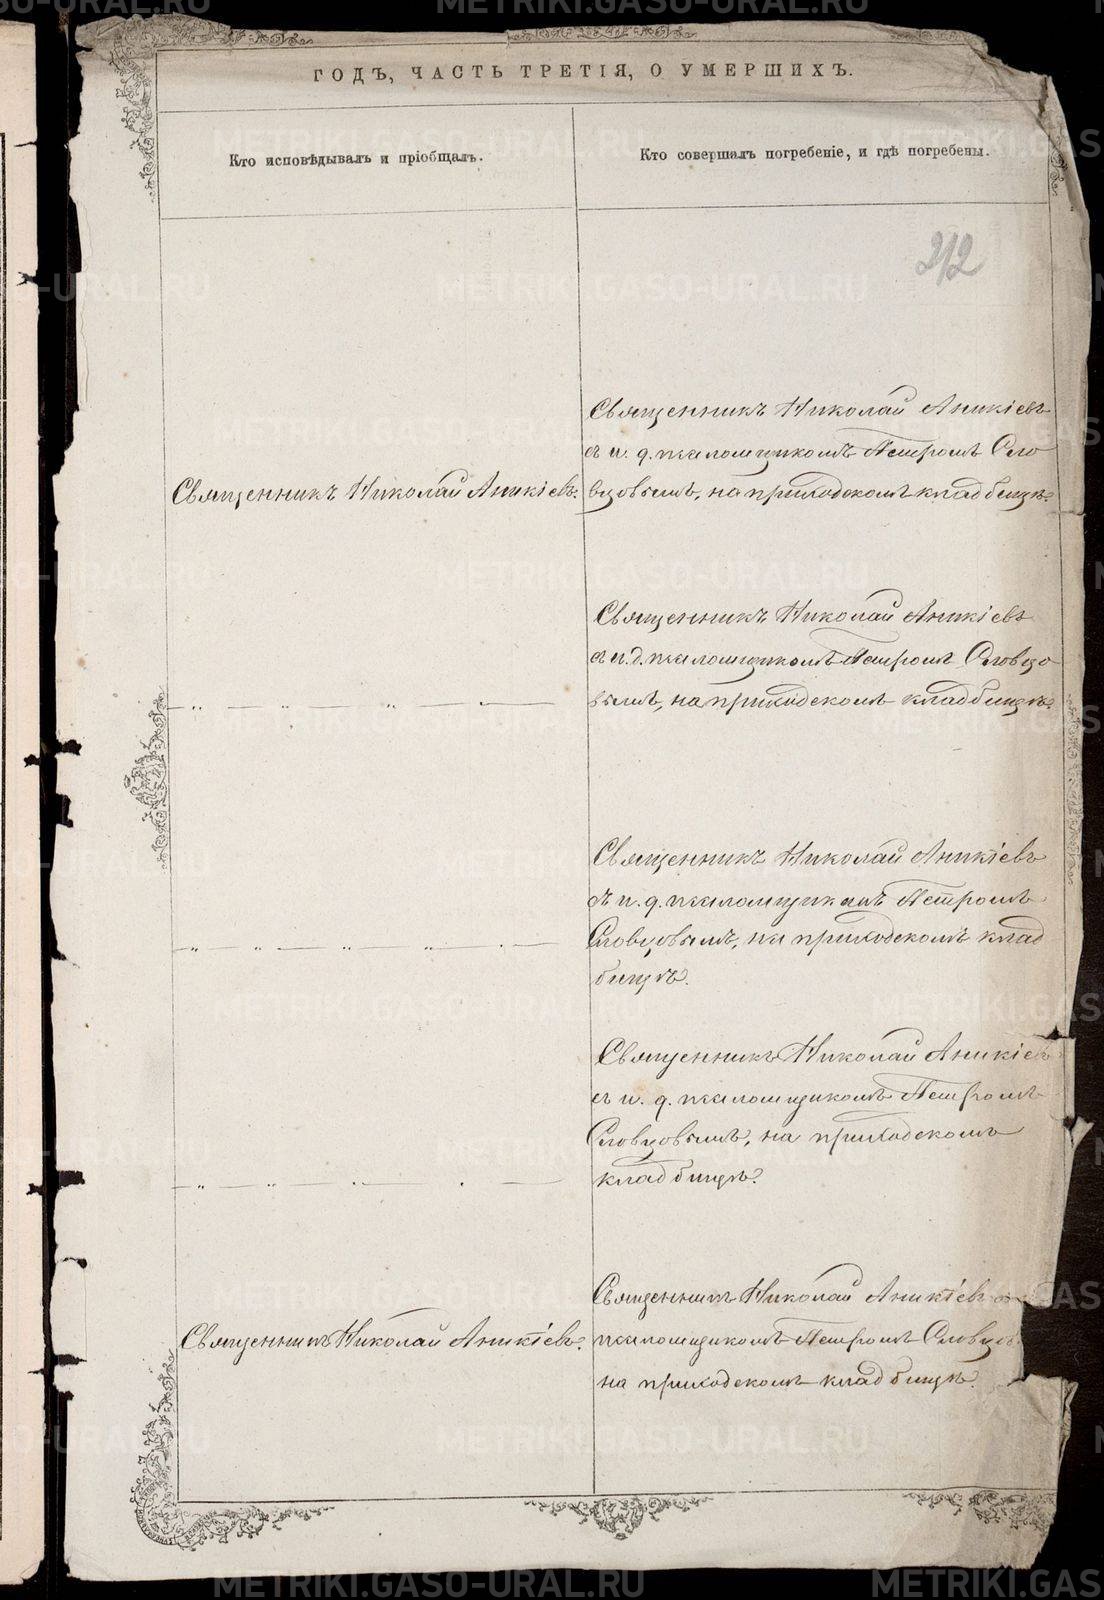 ГОДЪ, ЧАСТЬ ТРЕТІЯ, О УМЕРШИХЪ.
Кто исповѣдывалъ и пріобщалъ.
Кто совершалъ погребеніе, и гдѣ погребены.
212
Священникъ Николай Аникіевъ.
Священникъ Николай Аникіевъ
съ и. д. псаломщикомъ Петромъ Сло
вцовымъ, на приходскомъ кладбищѣ.
— „ — „ — „ — „ —
Священникъ Николай Аникіевъ
съ и. д. псаломщикомъ Петромъ Словцо
вымъ, на приходскомъ кладбищѣ.
— „ — „ — „ — „ — „ —
Священникъ Николай Аникіевъ
съ и. д. псаломщикомъ Петромъ
Словцовымъ, на приходскомъ клад
бищѣ.
— „ — „ — „ — „ —
Священникъ Николай Аникіевъ
съ и. д. псаломщикомъ Петромъ
Словцовымъ, на приходскомъ
кладбищѣ.
Священникъ Николай Аникіевъ.
Священникъ Николай Аникіевъ съ
псаломщикомъ Петромъ Словцов
на приходскомъ кладбищѣ.
METRIKI.GASO-URAL.RU